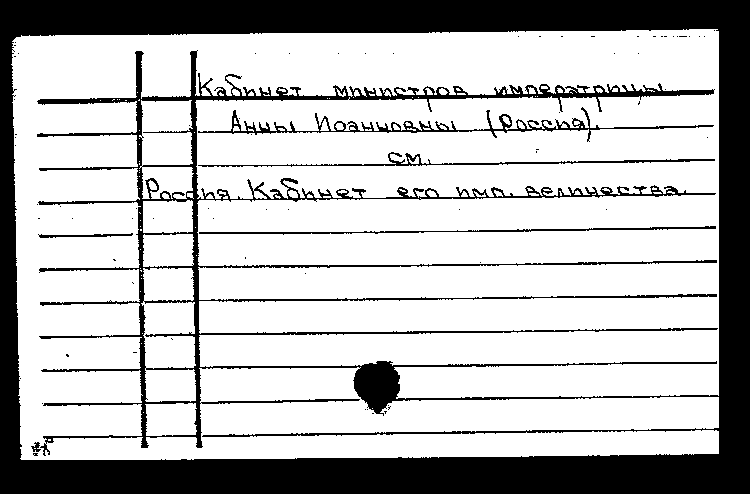 Кабинет министров императрицы
Анны Иоанновны (Россия).
см.
Россия. Кабинет его имп. величества.